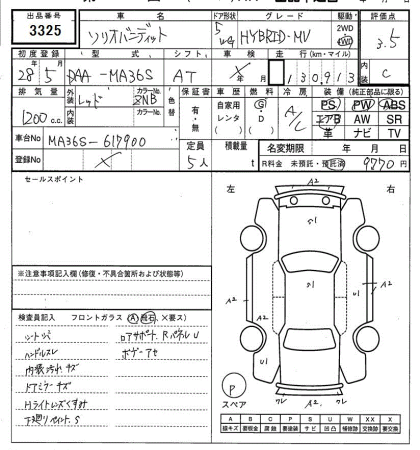 出品番号 車名 ドア形状 グレード 駆動 評価点
3325 ソリオバンディット 5 HYBRID-MV 2WD 4WD 3.5
初度登録 型式 シフト 車検 走行(km・マイル) 内装
28年5月 DAA-MA36S AT × 130,913 C
排気量 外装 カラーNo. 色替 保証書 車歴 燃料 冷房 装備(純正部品に限る)
1200 c.c. レッド ZNB 有・無 自家用 レンタ G・D A/C PS PW ABS
内装 カラーNo. エアB AW SR
革 ナビ TV
車台No MA36S-617900 定員 積載量 名変期限 年 月 日
登録No × 5人 t R料金 未預託・預託済 9770円
セールスポイント
左 右
A2
S1
A2 A2
A2
U1 U1
※注意事項記入欄(修復・不具合箇所および状態等)
検査員記入 フロントガラス (A) 飛石 ×要ス)
シートシミ ロアサポート、RパネルU
ハンドルスレ ボデーアセ
内装汚れキズ
ドアミラーキズ
Hライトレンズくすみ
下廻りペイント、S
P
スペア
クレ A2 クレ
A B C P S U W X XX ×
線キズ 要鈑金 腐蝕 要塗装 サビ 凹凸 補修跡 要交換